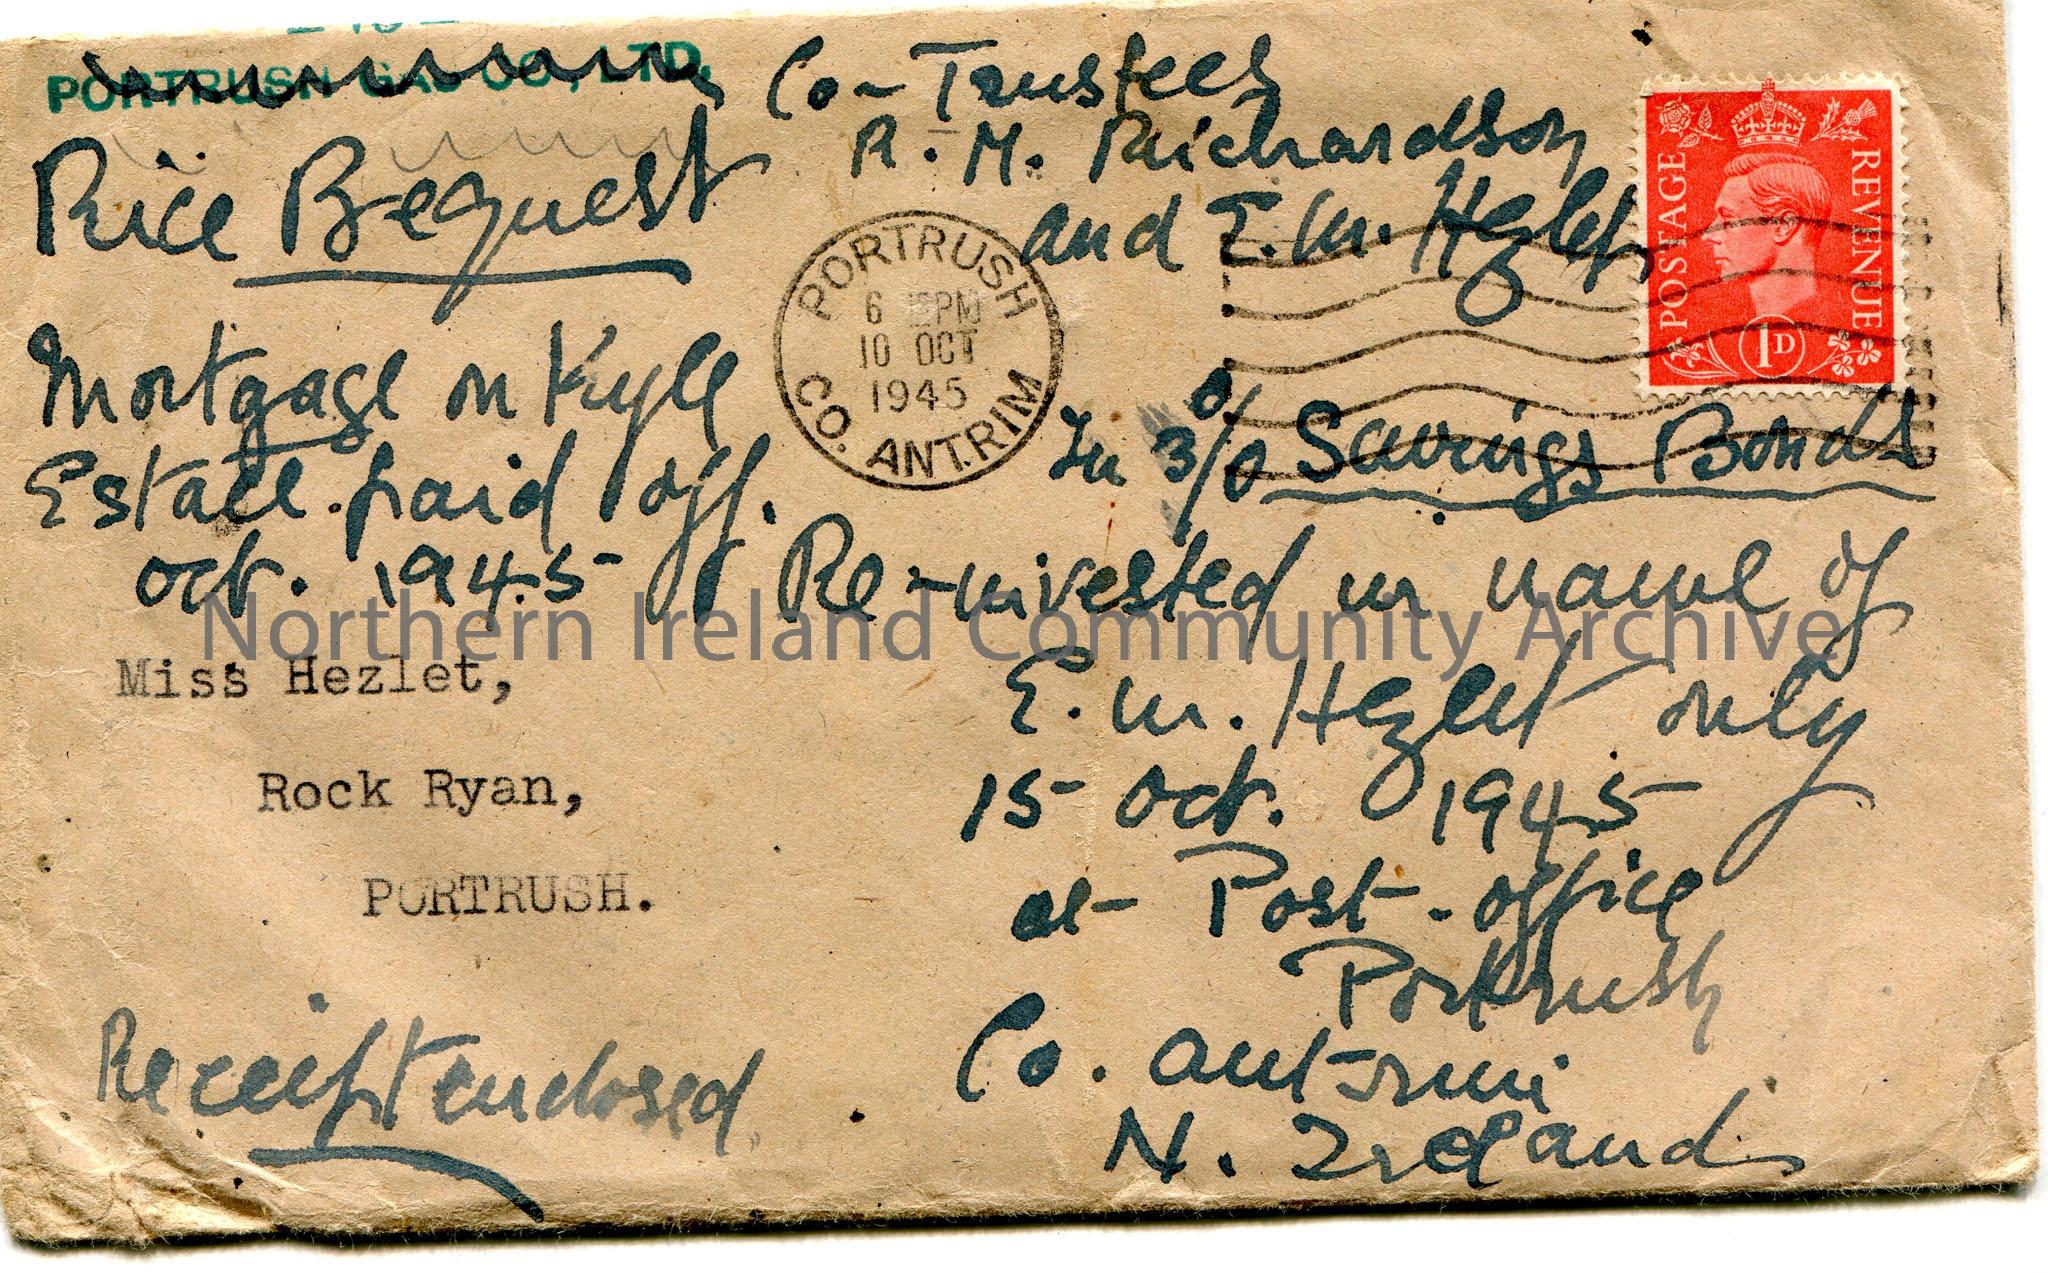 PORTRUSH GAS CO., LTD.
Co-Trustees
R. M. Richardson
and E. M. Hezlet
Price Bequest
Mortgage on Kyle
Estate paid off.
Oct. 1945
PORTRUSH
6 PM
10 OCT
1945
CO. ANTRIM
POSTAGE
REVENUE
1D
In 3% Savings Bonds
Re-invested in name of
E. M. Hezlet only
15 Oct. 1945
at Post-office
Portrush
Co. Antrim
N. Ireland
Northern Ireland Community Archive
Miss Hezlet,
Rock Ryan,
PORTRUSH.
Receipt enclosed